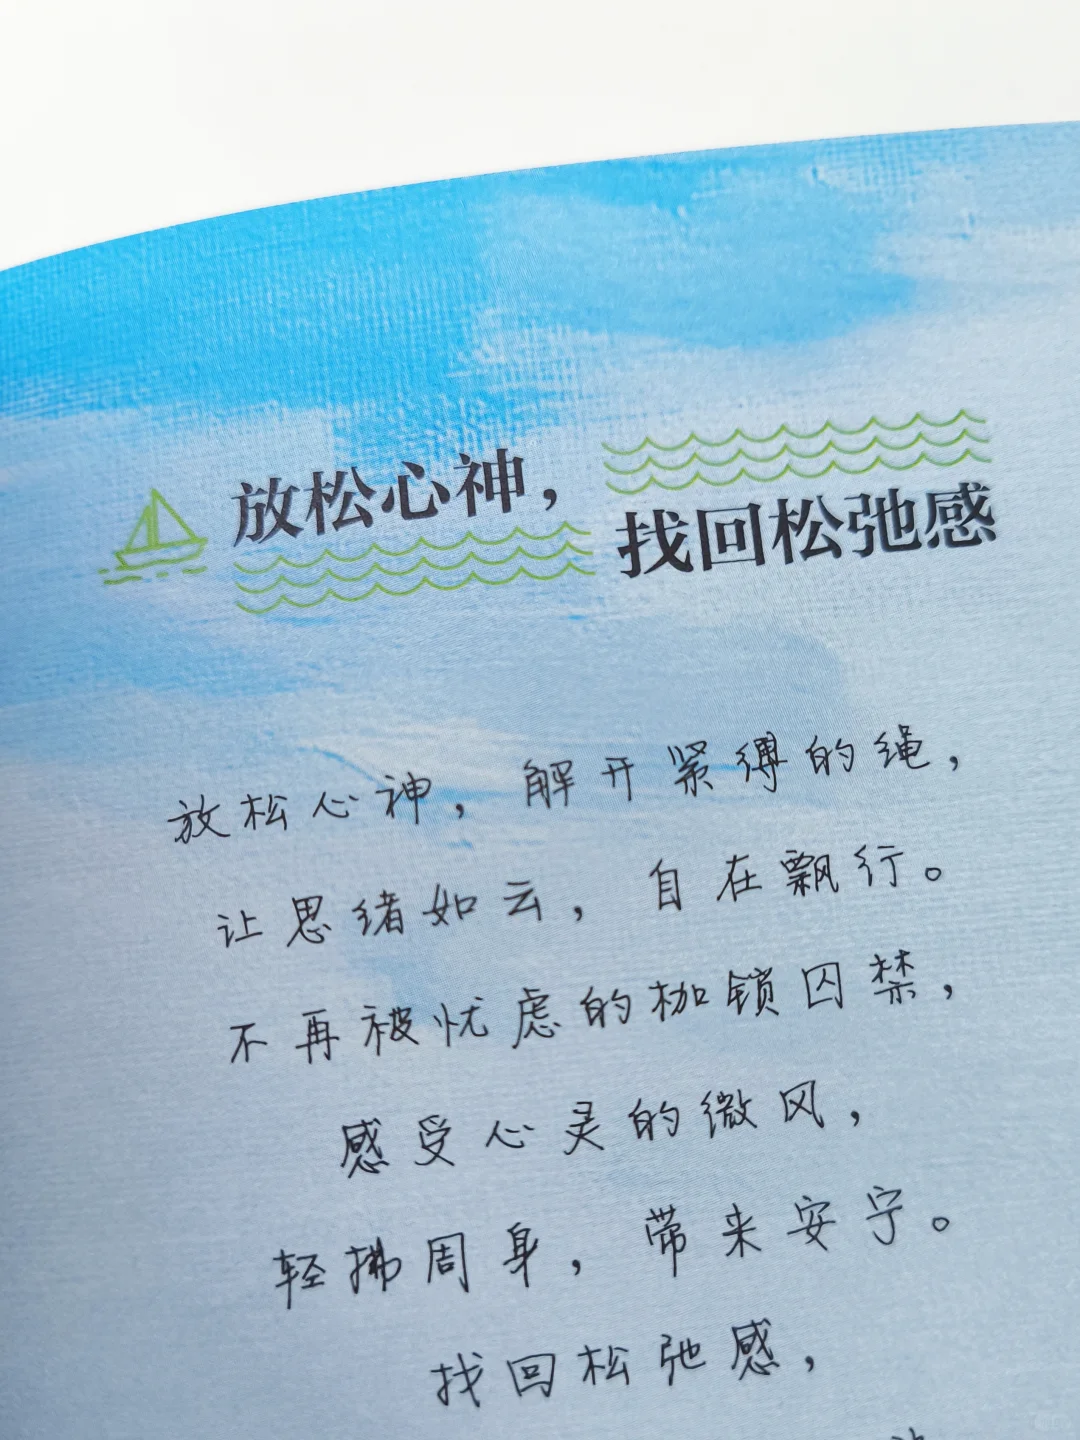 放松心神，
找回松弛感
放松心神，解开紧缚的绳，
让思绪如云，自在飘行。
不再被忧虑的枷锁囚禁，
感受心灵的微风，
轻拂周身，带来安宁。
找回松弛感，